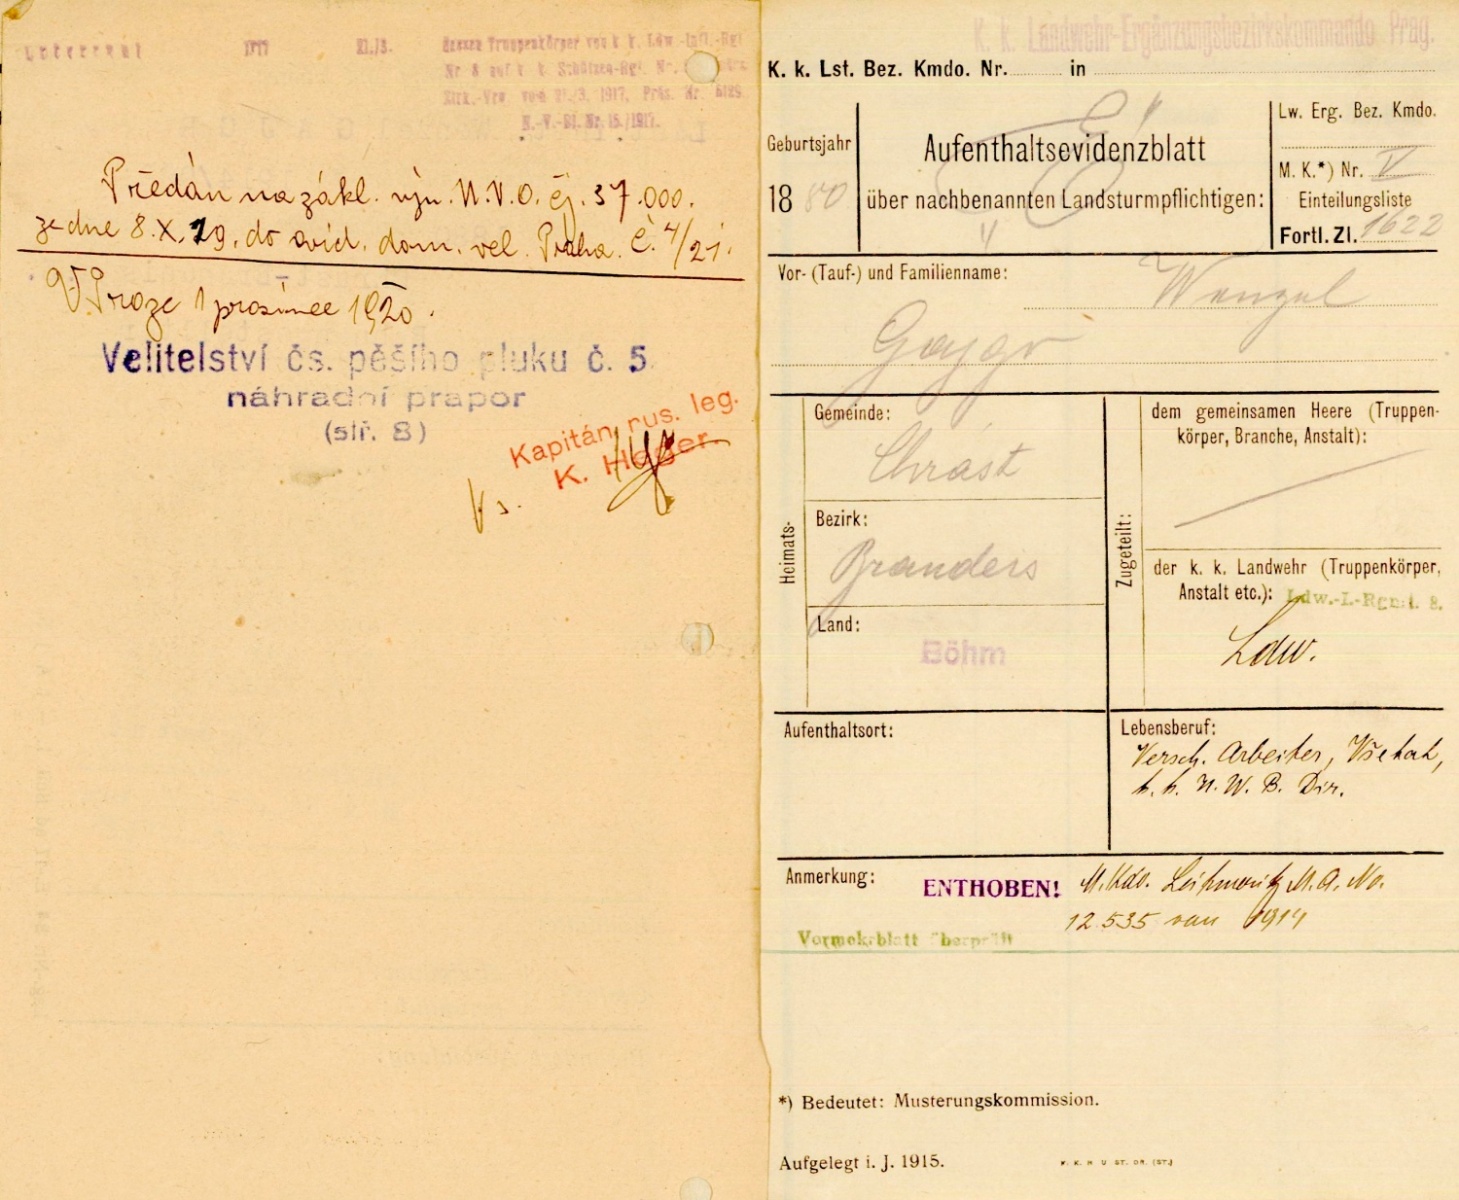 1917
dessen Truppenkörper von k. k. Ldw.-Inft.-Rgt.
Nr 8 auf k. k. Schützen-Rgt. Nr.
Zirk.-Vrw vom 21./3. 1917. Präs. Nr. 6129
N.-V.-Bl. Nr. 15./1917.
Předán na zákl. výn. N.V.O. čj. 37.000.
ze dne 8.X.19. do evid. dom. vel. Praha. č. 4/21.
V Praze 1 prosince 1920.
Velitelství čs. pěšího pluku č. 5
náhradní prapor
(stř. 8)
Kapitán rus. leg.
K. Heger
K. k. Landwehr-Ergänzungsbezirkskommando Prag.
K. k. Lst. Bez. Kmdo. Nr. in
Geburtsjahr
1880
Aufenthaltsevidenzblatt
über nachbenannten Landsturmpflichtigen:
Lw. Erg. Bez. Kmdo.
M. K.*) Nr. V
Einteilungsliste
Fortl. Zl. 1622
Vor- (Tauf-) und Familienname: Wenzel
Heimats-
Gemeinde:
Chrást
Bezirk:
Brandeis
Land:
Böhm
Zugeteilt:
dem gemeinsamen Heere (Truppen-
körper, Branche, Anstalt):
der k. k. Landwehr (Truppenkörper,
Anstalt etc.): Ldw.-I.-Rgmt. 8.
Ldw.
Aufenthaltsort:
Lebensberuf:
Versch. Arbeiter, Všetat,
k. k. N. W. B. Dir.
Anmerkung: ENTHOBEN! M. Kdo. Leitmeritz M. A. No.
12.535 von 1914
Vormekrblatt überprüft
*) Bedeutet: Musterungskommission.
Aufgelegt i. J. 1915.